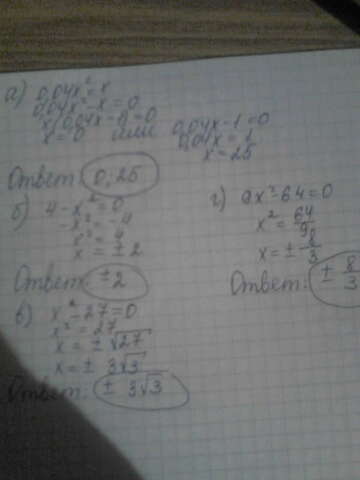 а) 0,04x² = x
0,04x² - x = 0
x(0,04x - 1) = 0
x = 0 или 0,04x - 1 = 0
0,04x = 1
x = 25
Ответ: 0; 25
б) 4 - x² = 0
-x² = -4
x² = 4
x = ± 2
Ответ: ± 2
в) x² - 27 = 0
x² = 27
x = ± √27
x = ± 3√3
Ответ: ± 3√3
г) 9x² - 64 = 0
x² = 64/9
x = ± 8/3
Ответ: ± 8/3